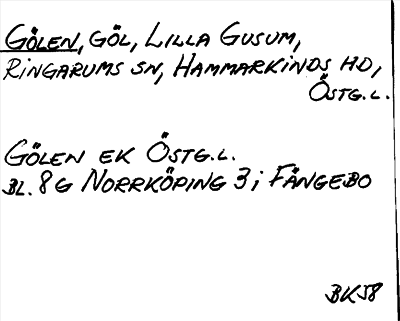 GÖLEN, GÖL, LILLA GUSUM,
RINGARUMS SN, HAMMARKINDS HD,
ÖSTG.L.
GÖLEN EK ÖSTG.L.
BL. 8G NORRKÖPING 3; FÅNGEBO
BK58